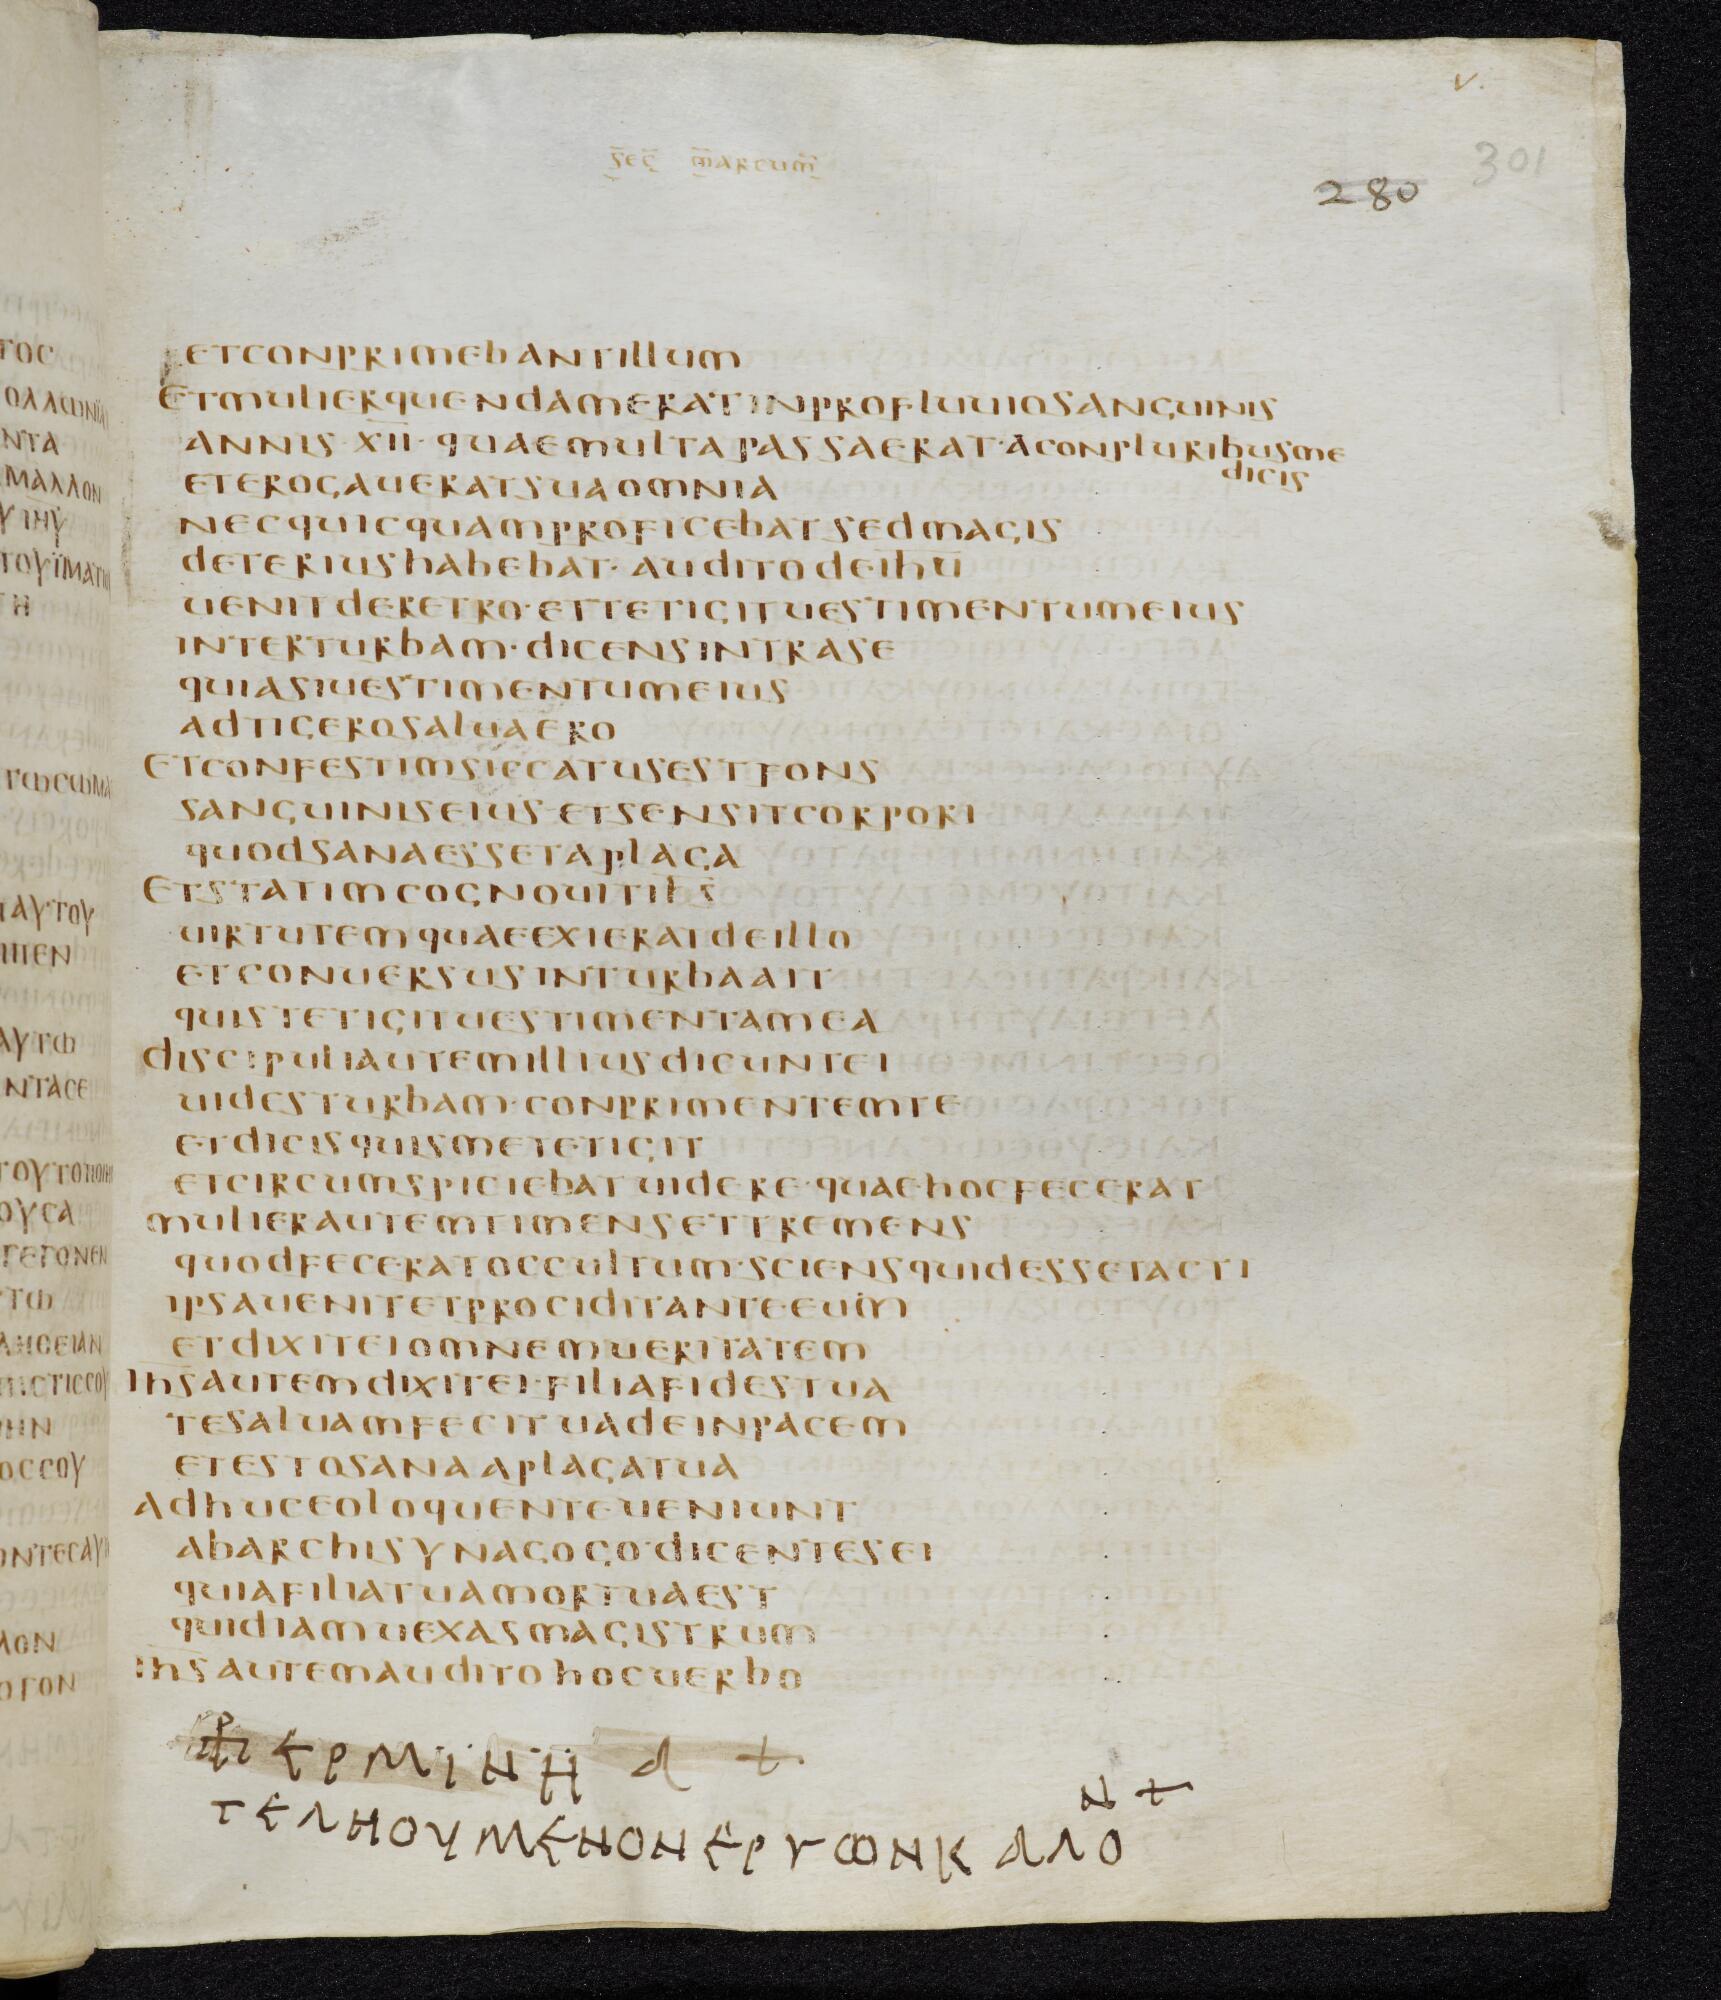 v.
301
280
s̄ec̄ m̄arcum̄
etconprimebantillum
Etmulierquendameratinprofluuiosanguinis
annis·xīī·quaemultapassaerat·aconpluribusme
dicis
eterogaueratsuaomnia
necquicquamproficebatsedmagis
deteriushabebat·auditodeih̄ū
uenitderetro·ettetigituestimentumeius
interturbam·dicensintrase
quiasiuestimentumeius
adtigerosaluaero
Etconfestimsiccatusestfons
sanguiniseius·etsensitcorpori
quodsanaessetaplaga
Etstatimcognouitih̄s̄
uirtutemquaeexieratdeillo
etconuersusinturbaait
quistetigituestimentamea
discipuliautemilliusdicuntei
uidesturbam·conprimentemte
etdicisquismetetigit
etcircumspiciebatuidere·quaehocfecerat
mulierautemtimensettremens
quodfeceratoccultum·sciensquidessetacti
ipsauenitetprociditanteeuim
etdixiteiomnemueritatem
ih̄s̄autemdixitei·filiafidestua
tesaluamfecituadeinpacem
etestosanaaplagatua
adhuceoloquenteueniunt
abarchisynagogo·dicentesei
quiafiliatuamortuaest
quidiamuexasmagistrum
ih̄s̄autemauditohocuerbo
ερμινηα +
ν +
τεληουμενονεργωνκαλο